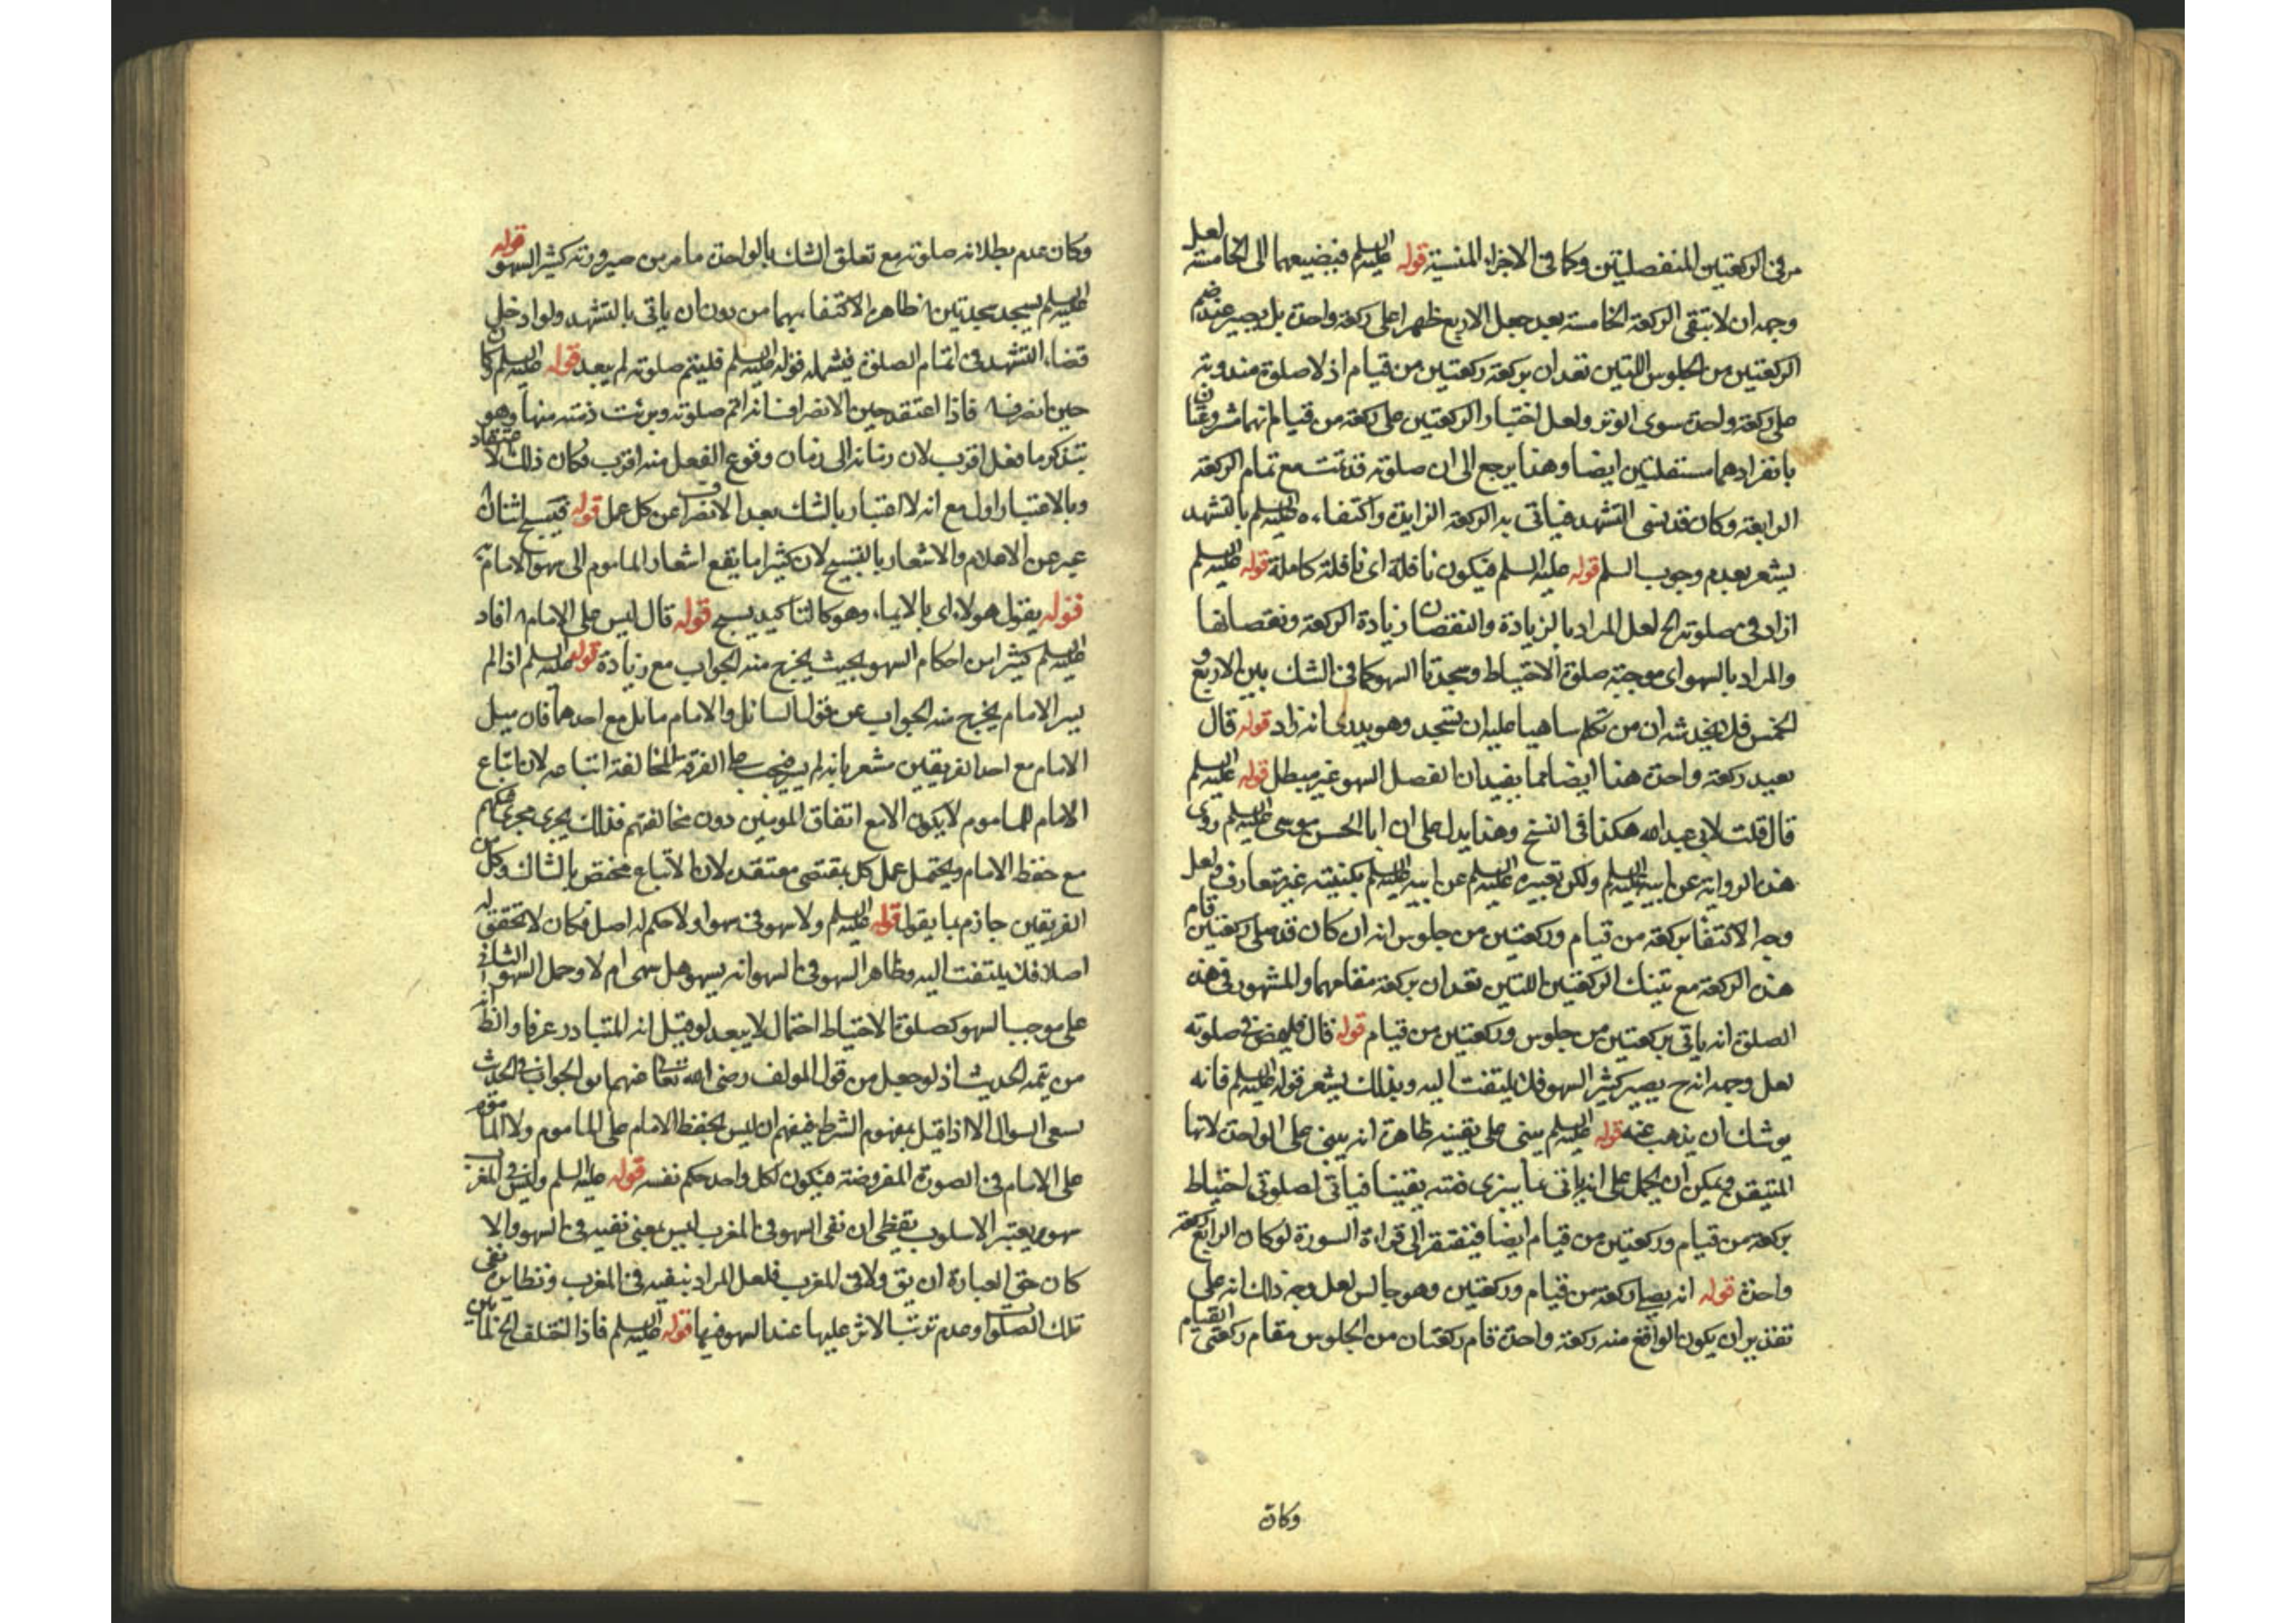 مر فى الركعتين المنفصلتين وكما فى الاجزاء المنسية قوله عليه السلم فيضيعهما الى الخامسة لعل
وجه ان لا تبقى الركعة الخامسة بعد جعل الاربع ظهرا على ركعة واحدة بل يصير عند ضم
الركعتين من الجلوس اللتين تعدان بركعة ركعتين من قيام اذ لا صلوة مندوبة
على ركعة واحدة سوى الوتر ولعل اختيار الركعتين على ركعة من قيام انهما مشروعتان
بانفرادهما مستقلتين ايضا وهذا يرجع الى ان صلوته قد تمت مع تمام الركعة
الرابعة وكان قد نسى التشهد فياتى به الركعة الزايدة واكتفاءه عليه السلم بالتشهد
يشعر بعدم وجوب السلم قوله عليه السلم فيكون نافلة اى نافلة كاملة قوله عليه السلم
ازاد فى صلوته الخ لعل المراد بالزيادة والنقصان زيادة الركعة ونقصانها
والمراد بالسهو اى موجبة صلوة الاحتياط وسجدتا السهو كما فى الشك بين الاربع و
الخمس فلا يخدشه ان من تكلم ساهيا عليه ان يسجد وهو يدرى انه زاد قوله قال
يعيد ركعة واحدة هذا ايضا مما يفيد ان الفصل السهو غير مبطل قوله عليه السلم
قال قلت لابى عبد الله هكذا فى النسخ وهذا يدل على ان ابا الحسن موسى عليه السلم روى
هذه الرواية عن ابيه عليه السلم ولكن تعبيره عليه السلم عن ابيه عليه السلم بكنيته غير متعارف ولعل
وجه الاكتفا بركعة من قيام وركعتين من جلوس انه ان كان قد صلى ركعتين قام
هذه الركعة مع تينك الركعتين اللتين تعدان بركعة مقامهما والمشهور فى هذه
الصلوة انه ياتى بركعتين من جلوس وركعتين من قيام قوله قال فليمض فى صلوته
لعل وجهه انه ح يصير كثير السهو فلا يلتفت اليه وبذلك يشعر قوله عليه السلم فانه
يوشك ان يذهب عنه قوله عليه السلم يبنى على يقينه ظاهره انه يبنى على الواحدة لانها
المتيقن ويمكن ان يحمل على انه ياتى بما يبرى ذمته يقينا فياتى لصلوتى احتياط
بركعة من قيام وركعتين من قيام ايضا فيفتقر الى قراءة السورة لو كان الرابع ركعة
واحدة قوله انه يصلى ركعة من قيام وركعتين وهو جالس لعل وجه ذلك انه على
تقدير ان يكون الواقع منه ركعة واحدة قام ركعتان من الجلوس مقام ركعتى القيام
وكان
وكان عدم بطلانه صلوته مع تعلق الشك بالواحدة ما مر من صيرورته كثير السهو قوله
عليه السلم يسجد سجدتين ظاهره الاكتفا بهما من دون ان ياتى بالتشهد ولو ادخل
قضاء التشهد فى اتمام الصلوة فيشمله قوله عليه السلم فليتم صلوته لم يبعد قوله عليه السلم كان
حين انصرفه فاذا اعتقد حين الانصراف انه اتم صلوته وبرئت ذمته منها وهو
يتذكر ما فعل اقرب لان زمانه الى زمان وقوع الفعل منه اقرب فكان ذلك لاعتقاد
وبالاعتبار اولى مع انه لا اعتبار بالشك بعد الانصراف عن كل عمل قوله فيسبح اثنان
عبر عن الاعلام والاشعار بالتسبيح لان كثيرا ما يقع اشعار الماموم الى سهو الامام به
قوله يقول هولاء اى بالايماء وهو كالتاكيد يسبح قوله قال ليس على الامام افاد
عليه السلم كثيرا من احكام السهو بحيث يخرج منه الجواب مع زيادة قوله عليه السلم اذا لم
يسر الامام يخرج منه الجواب عن قول السائل والامام مائل مع احدهما فان ميل
الامام مع احد الفريقين مشعر بانه لم على الفرقة المخالفة اتباعه لان اتباع
الامام للماموم لا يكون الا مع اتفاق المومنين دون مخالفتهم فذلك يجرى مجرى حكمهم
مع حفظ الامام ويحتمل عمل كل بمقتضى معتقده لان الاتباع مختص بالشاك وكل من
الفريقين جازم بما يقول قوله عليه السلم ولا سهو فى سهو او لا حكم له اصلا فكان لا تحقق له
اصلا فلا يلتفت اليه وظاهر السهو فى السهو انه يسهو هل سهى ام لا وحمل السهو الثانى
على موجب السهو كصلوة الاحتياط احتمال لا يبعد لو قيل انه المتبادر عرفا والظ انه
من تتمة الحديث اذ لو جعل من قول المولف رضى الله تعا فهما بو الجواب فى الحديث
يسعى السوال الا اذا قيل بمفهوم الشرط فيفهم ان ليس بحفظ الامام على الماموم ولا الماموم
على الامام فى الصورة المفروضة فيكون لكل واحد حكم نفسه قوله عليه السلم وليس فى المغرب
سهو يعتبر الاسلوب يقتظى ان نفى السهو فى المغرب ليس بمعنى نفيه فى السهو والا
كان حق العبارة ان يق ولا فى المغرب فلعل المراد بنفيه فى المغرب ونظايره نفى
تلك الصلوات وعدم ترتب الاثر عليها عند السهو فيها قوله عليه السلم فاذا اختلف الخ لما بين